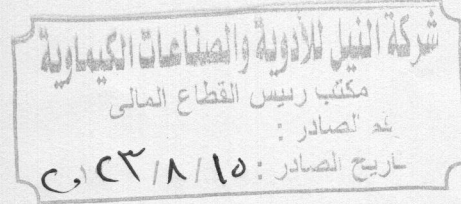 شركة النيل للأدوية والصناعات الكيماوية
مكتب رئيس القطاع المالى
الصادر :
تاريخ الصادر : ١٥ / ٨ / ٢٠٢٣